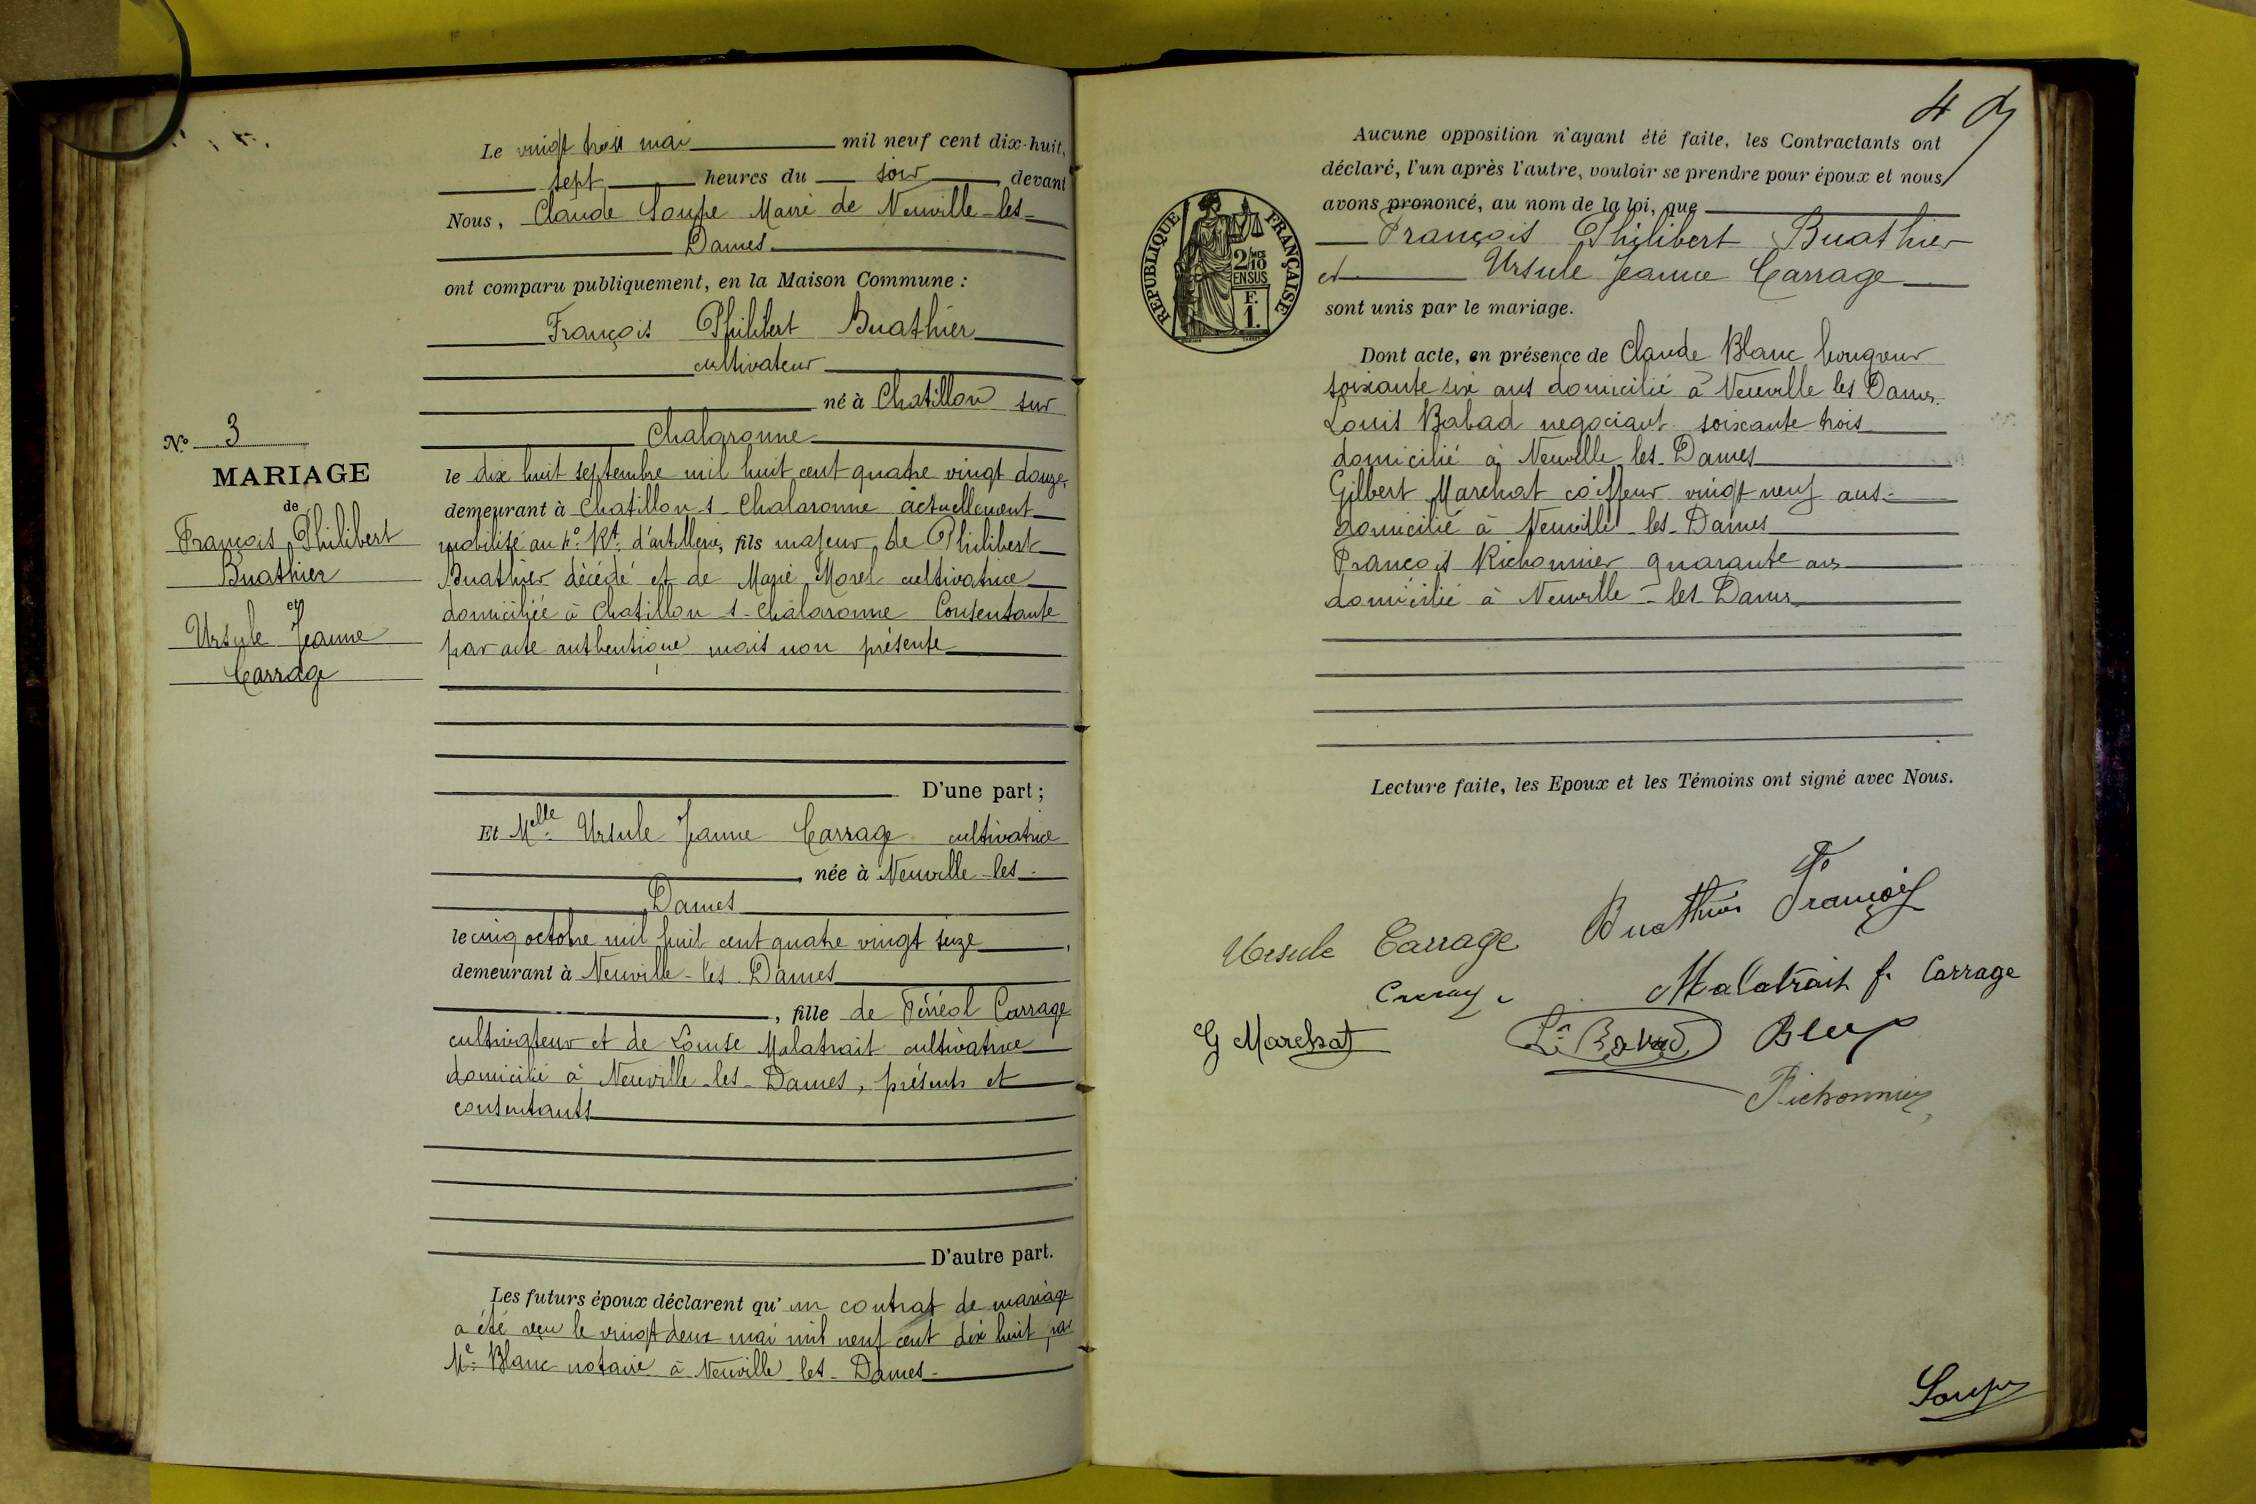 Le vingt trois mai mil neuf cent dix-huit,
sept heures du soir, devant
Nous, Claude Soupe Maire de Neuville-les-
Dames
ont comparu publiquement, en la Maison Commune :
François Philibert Buathier
cultivateur
né à Chatillon sur
Chalaronne
No 3
MARIAGE
de
François Philibert
Buathier
et
Ursule Jeanne
Carrage
le dix huit septembre mil huit cent quatre vingt douze,
demeurant à Chatillon s Chalaronne actuellement
mobilisé au Rt. d'artillerie, fils majeur de Philibert
Buathier décédé et de Marie Morel cultivatrice
domiciliée à Chatillon s-Chalaronne Consentante
par acte authentique mais non présente
D'une part ;
Et Melle Ursule Jeanne Carrage cultivatrice
née à Neuville-les-
Dames
le cinq octobre mil huit cent quatre vingt seize,
demeurant à Neuville-les-Dames
, fille de Féréol Carrage
cultivateur et de Louise Malatrait cultivatrice
domicilié à Neuville-les-Dames, présents et
consentants
D'autre part.
Les futurs époux déclarent qu'un contrat de mariage
a été reçu le vingt deux mai mil neuf cent dix huit par
Me Blanc notaire à Neuville les-Dames-
4
Aucune opposition n'ayant été faite, les Contractants ont
déclaré, l'un après l'autre, vouloir se prendre pour époux et nous
avons prononcé, au nom de la loi, que
François Philibert Buathier
et Ursule Jeanne Carrage
sont unis par le mariage.
RÉPUBLIQUE FRANÇAISE
2/10
MES
EN SUS
F.
1.
Dont acte, en présence de Claude Blanc
soixante six ans domicilié à Neuville les Dames.
Louis Babad negociant soixante trois
domicilié à Neuville les-Dames
Gilbert Marchat coiffeur vingt neuf ans-
domicilié à Neuville-les-Dames
François Richonnier quarante ans
domicilié à Neuville-les-Dames
Lecture faite, les Epoux et les Témoins ont signé avec Nous.
Buathier François
Ursule Carrage
Malatrait f. Carrage
G Marchat
Richonnier
Soupe